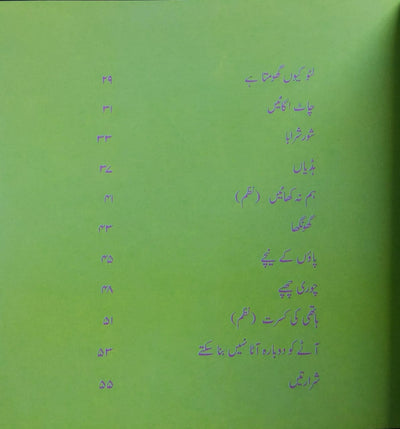 لٹو کیوں گھومتا ہے ۲۹
چاٹ لگائیں ۳۱
شور شرابا ۳۳
ہڈیاں ۳۷
ہم نہ کھائیں (نظم) ۴۱
گھونگھا ۴۳
پاؤں کے نیچے ۴۵
چوری چھپے ۴۸
ہاتھی کی کسرت (نظم) ۵۱
آٹے کو دوبارہ آٹا نہیں بنا سکتے ۵۳
شرارتیں ۵۵